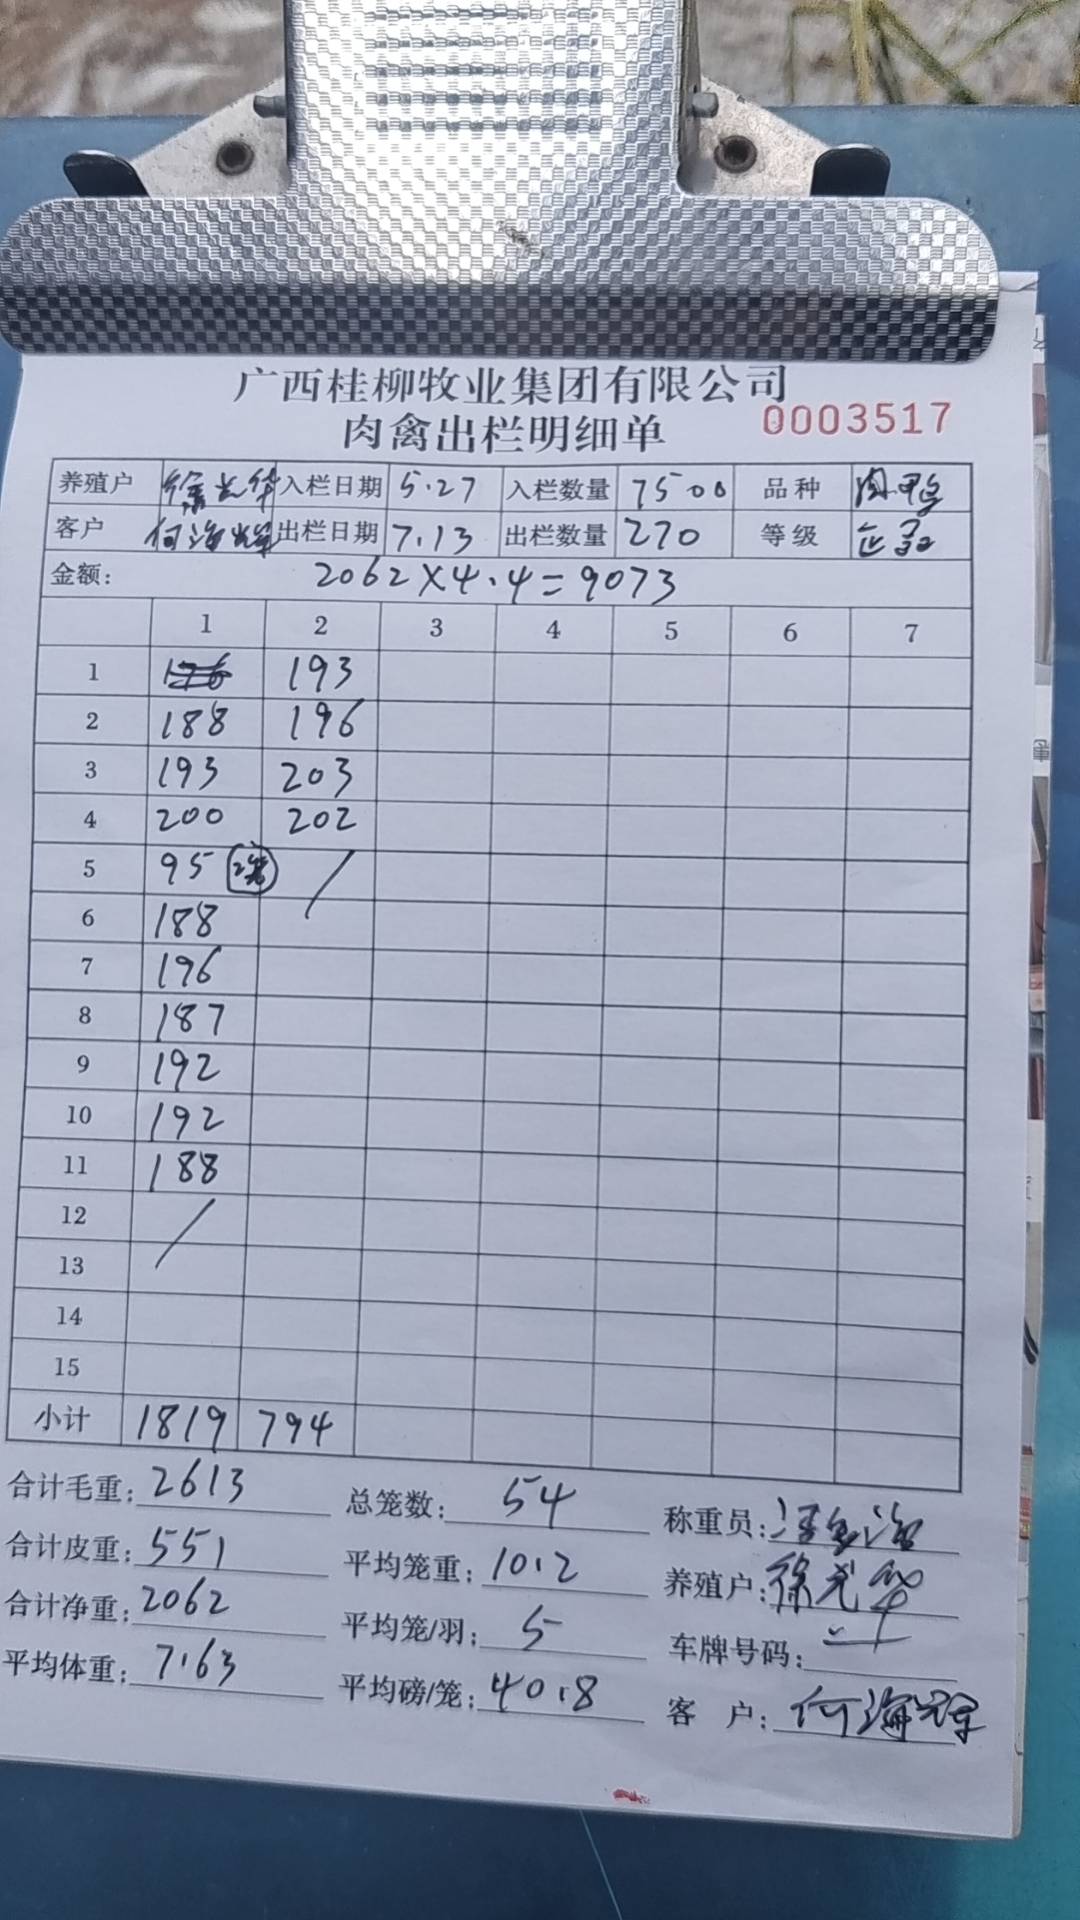 广西桂柳牧业集团有限公司
肉禽出栏明细单 0003517
养殖户 徐光华 入栏日期 5.27 入栏数量 7500 品种 肉鸭
客户 何海辉 出栏日期 7.13 出栏数量 270 等级 正品
金额: 2062×4.4=9073
1 2 3 4 5 6 7
1 193
2 188 196
3 193 203
4 200 202
5 95 2笼 /
6 188
7 196
8 187
9 192
10 192
11 188
12 /
13
14
15
小计 1819 794
合计毛重: 2613 总笼数: 54 称重员:
合计皮重: 551 平均笼重: 10.2 养殖户: 徐光华
合计净重: 2062 平均笼/羽: 5 车牌号码:
平均体重: 7.63 平均磅/笼: 40.8 客 户: 何海辉